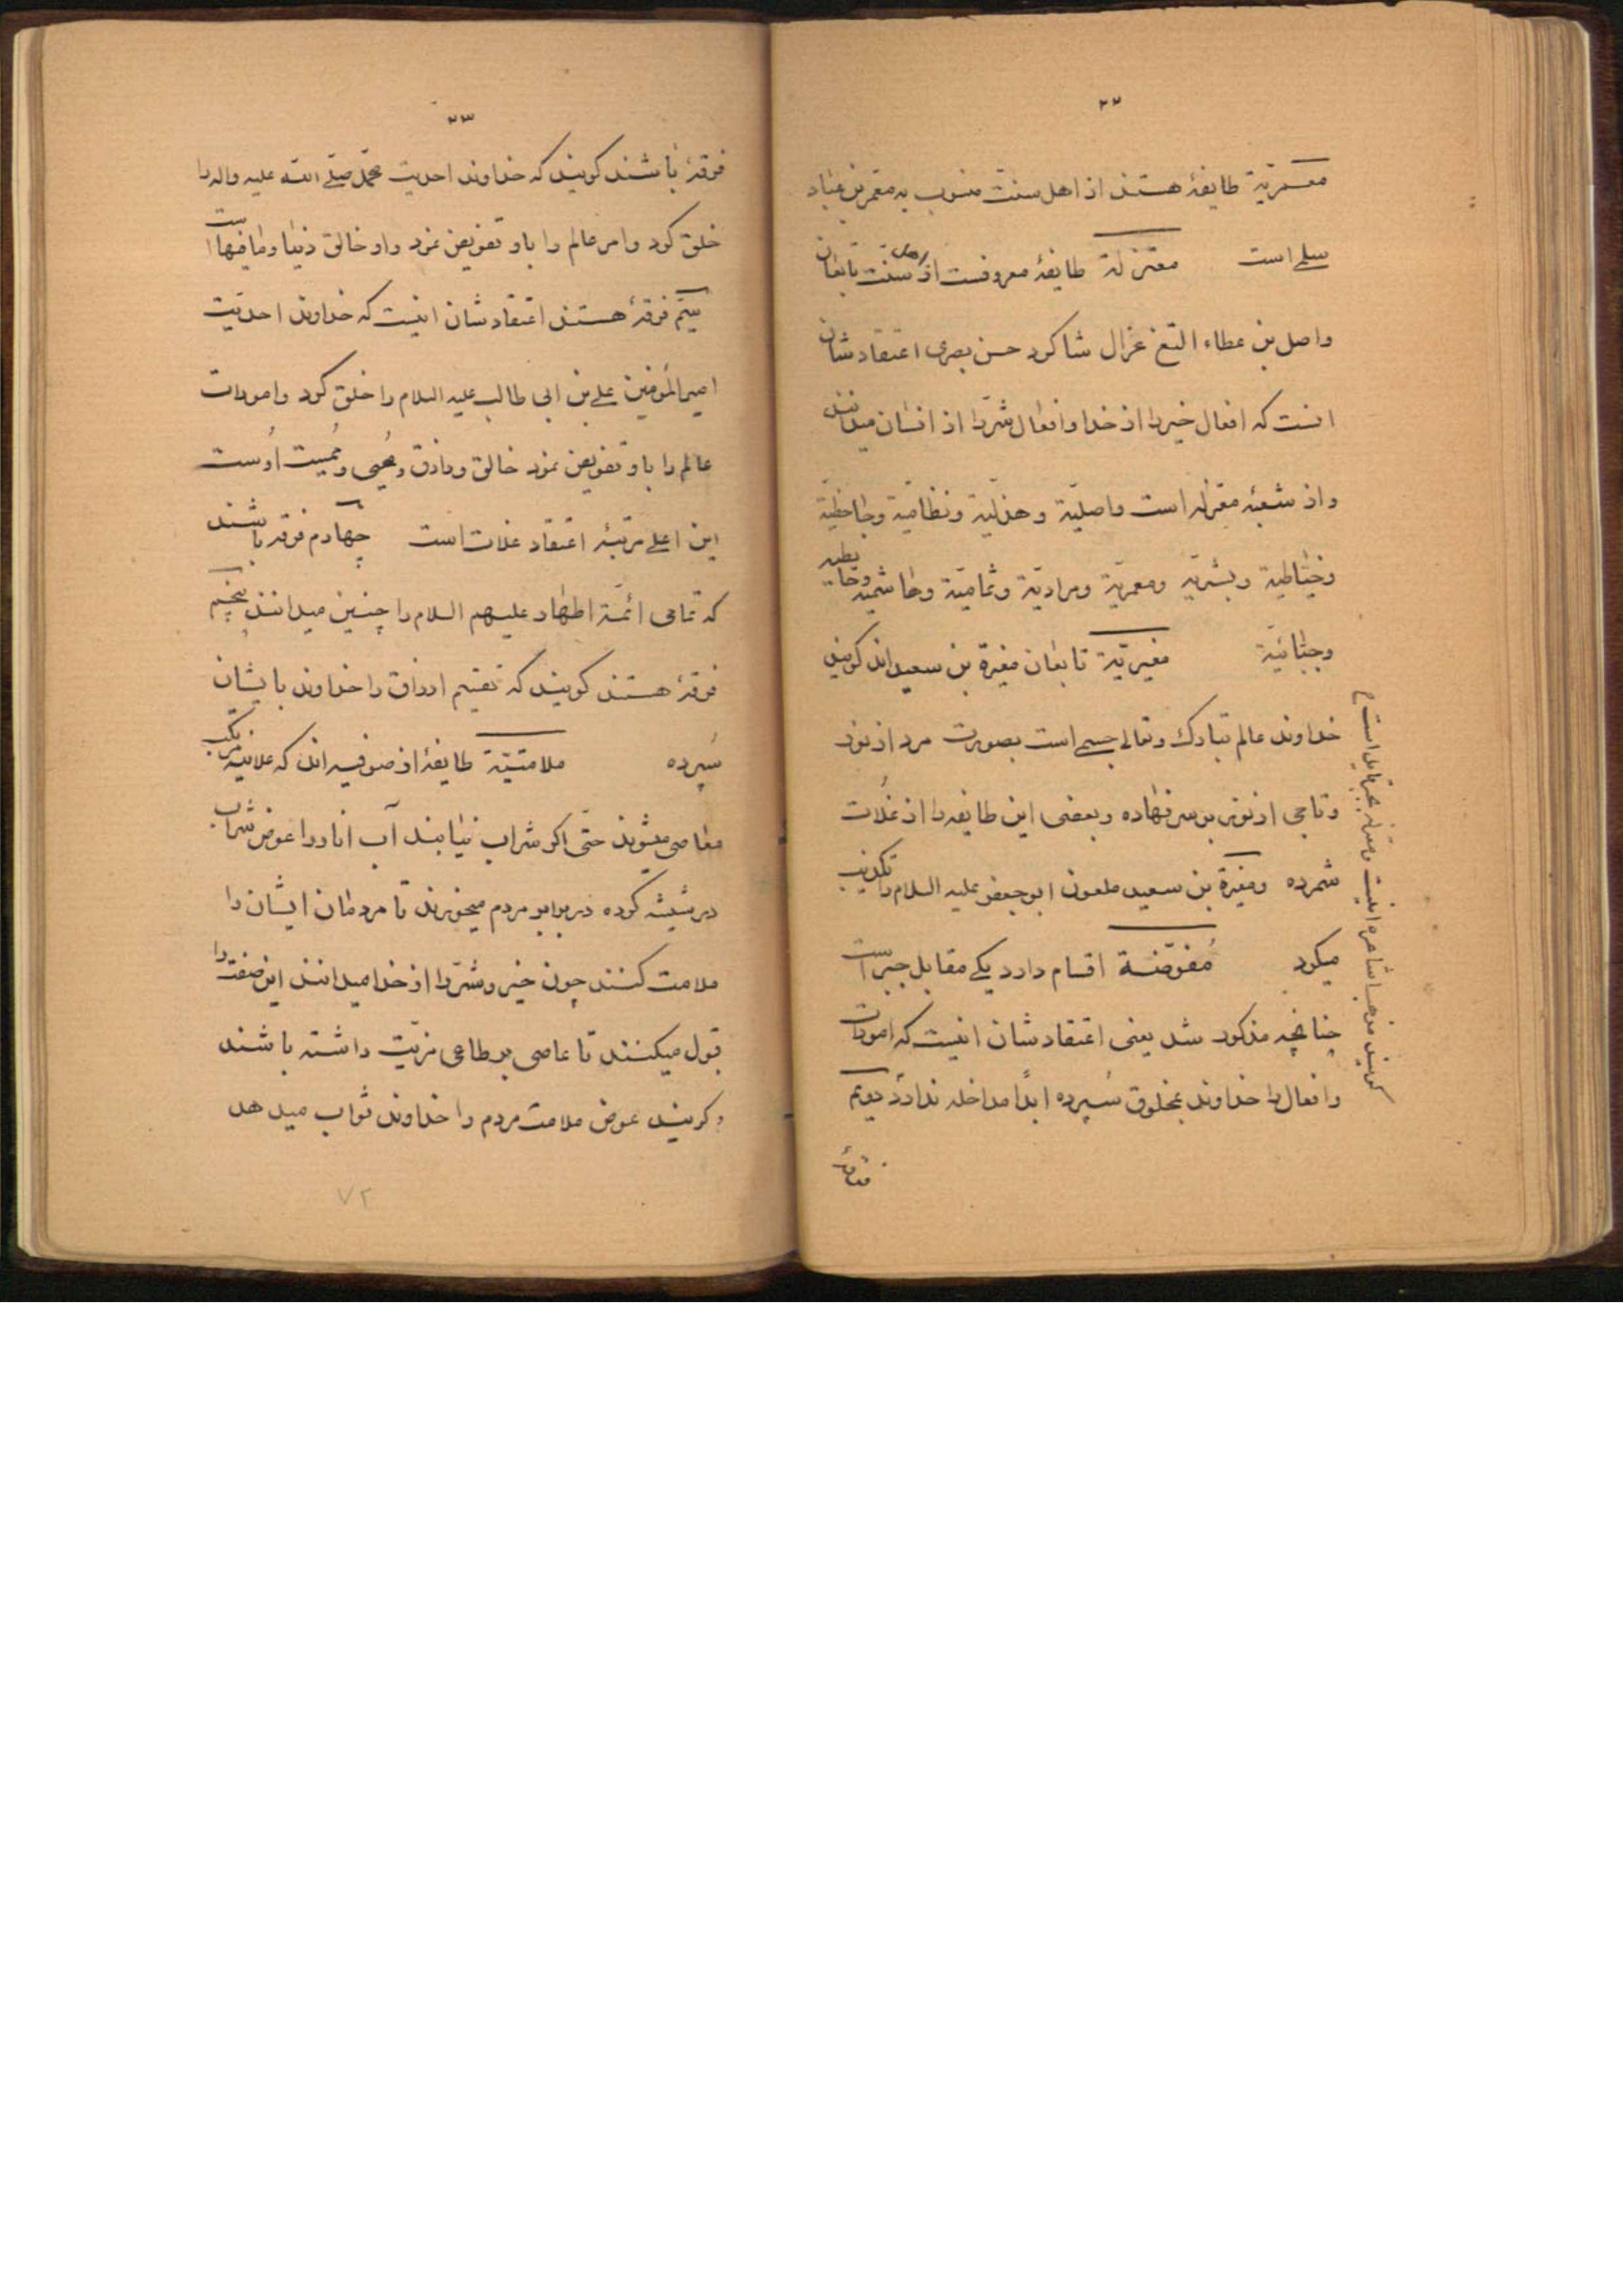 ۲۲
معمریّة طایفهٔ هستند از اهل سنت منسوب به معمر بن عبّاد
سلمی است معتزلة طایفهٔ معروفست از اهل سنّت تابعان
واصل بن عطاء التغ غزال شاکرد حسن بصری اعتقادشان
اینست که افعال خیر را از خدا و افعال شرّ را از انسان میدانند
و از شعبهٔ معتزله است واصلیّة و هذلیّة و نظامیّة و جاحظیّة
و خیّاطیة و بشریّه و معمریّة و مرادیّة و ثمامیّة و هاشمیه و حابطیه
و جبّائیّة مغیریّة تابعان مغیرة بن سعید اند کویند
خداوند عالم تبارك و تعالی جسمی است بصورت مرد از نور
و تاجی از نور بر سر نهاده و بعضی این طایفه را از غلات
شمرده و مغیرة بن سعید ملعون ابو جعفر علیه السلام را تکذیب
میکرد مُفوّضة اقسام دارد یکی مقابل جبر است
چنانچه مذکور شد یعنی اعتقادشان اینست که امورات
و افعال را خداوند بمخلوق سُپرده ابدًا مداخله ندارد دویم
کویند مذهب اشاعره اینست و معتزله
۲۳
فرقهٔ باشند کویند که خداوند احدیت محمّد صلّی الله علیه واله را
خلق کرد و امر عالم را باو تفویض نمود و او خالق دنیا و مافیها است
سیّم فرقهٔ هستند اعتقادشان اینست که خداوند احدیّت
امیرالمؤمنین علی بن ابی طالب علیه السلام را خلق کرد و امورات
عالم را باو تفویض نمود خالق و رازق و مُحیی و مُمیت اُوست
این اعلی مرتبهٔ اعتقاد غلات است چهارم فرقه باشند
که تمامی ائمّة اطهار علیهم السلام را چنین میدانند پنجم
فرقهٔ هستند کویند که تقسیم ارزاق را خداوند بایشان
سُپرده ملامتیّة طایفهٔ از صوفیه اند که علانیه مرتکب
معاصی میشوند حتّی اکر شراب نیابند آب انار را عوض شراب
در شیشه کرده در برابر مردم میخورند تا مردمان ایشان را
ملامت کنند چون خیر و شرّ را از خدا میدانند این صفت را
قبول میکنند تا عاصی بر طاعی مزیّت داشته باشند
و کویند عوض ملامت مردم را خداوند ثواب میدهد
۷۲